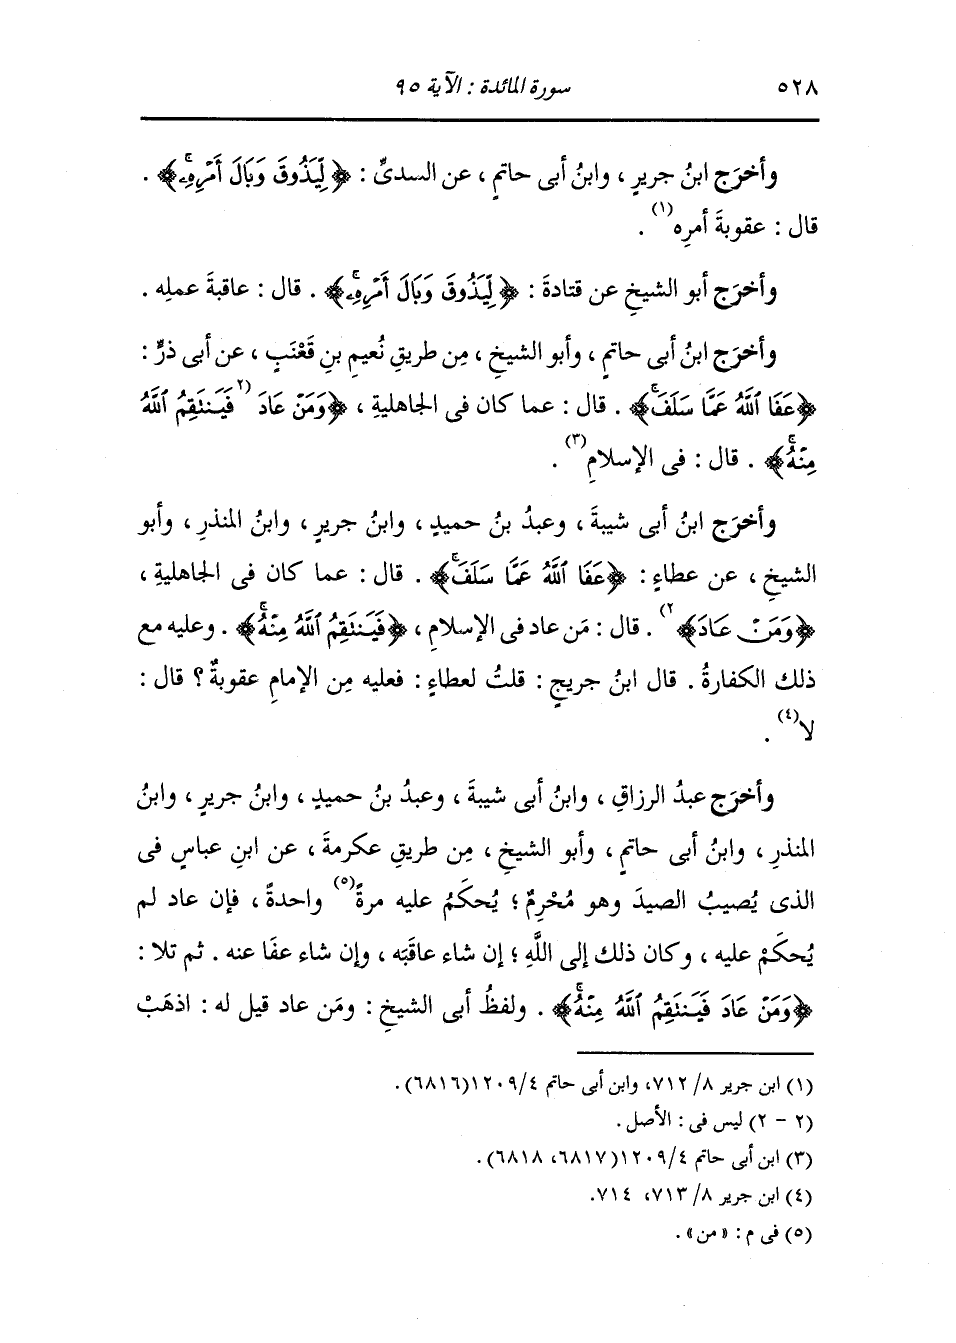 ٥٢٨
سورة المائدة : الآية ٩٥
وأخرَج ابنُ جريرٍ ، وابنُ أبى حاتمٍ ، عن السدىِّ : ﴿لِّيَذُوقَ وَبَالَ أَمْرِهِۦۗ﴾ .
قال : عقوبةَ أمرِه(١) .
وأخرَج أبو الشيخِ عن قتادةَ : ﴿لِّيَذُوقَ وَبَالَ أَمْرِهِۦۗ﴾ . قال : عاقبةَ عملِه .
وأخرَج ابنُ أبى حاتمٍ ، وأبو الشيخِ ، مِن طريقِ نُعيمِ بنِ قَعْنَبٍ ، عن أبى ذرٍّ :
﴿عَفَا ٱللَّهُ عَمَّا سَلَفَۚ﴾ . قال : عما كان فى الجاهليةِ ، ﴿وَمَنْ عَادَ (٢فَيَنتَقِمُ ٱللَّهُ
مِنْهُۗ﴾ . قال : فى الإسلامِ(٣) .
وأخرَج ابنُ أبى شيبةَ ، وعبدُ بنُ حميدٍ ، وابنُ جريرٍ ، وابنُ المنذرِ ، وأبو
الشيخِ ، عن عطاءٍ : ﴿عَفَا ٱللَّهُ عَمَّا سَلَفَۚ﴾ . قال : عما كان فى الجاهليةِ ،
﴿وَمَنْ عَادَ﴾٢) . قال : مَن عاد فى الإسلامِ ، ﴿فَيَنتَقِمُ ٱللَّهُ مِنْهُۗ﴾ . وعليه مع
ذلك الكفارةُ . قال ابنُ جريجٍ : قلتُ لعطاءٍ : فعليه مِن الإمامِ عقوبةٌ ؟ قال :
لا(٤) .
وأخرَج عبدُ الرزاقِ ، وابنُ أبى شيبةَ ، وعبدُ بنُ حميدٍ ، وابنُ جريرٍ ، وابنُ
المنذرِ ، وابنُ أبى حاتمٍ ، وأبو الشيخِ ، مِن طريقِ عكرمةَ ، عن ابنِ عباسٍ فى
الذى يُصيبُ الصيدَ وهو مُحْرِمٌ ؛ يُحكَمُ عليه مرةً(٥) واحدةً ، فإن عاد لم
يُحكَمْ عليه ، وكان ذلك إلى اللَّهِ ؛ إن شاء عاقَبَه ، وإن شاء عفَا عنه . ثم تلا :
﴿وَمَنْ عَادَ فَيَنتَقِمُ ٱللَّهُ مِنْهُۗ﴾ . ولفظُ أبى الشيخِ : ومَن عاد قيل له : اذهَبْ
(١) ابن جرير ٨/ ٧١٢، وابن أبى حاتم ١٢٠٩/٤ (٦٨١٦).
(٢ - ٢) ليس فى : الأصل .
(٣) ابن أبى حاتم ١٢٠٩/٤ (٦٨١٧، ٦٨١٨).
(٤) ابن جرير ٨/ ٧١٣، ٧١٤.
(٥) فى م : « من » .